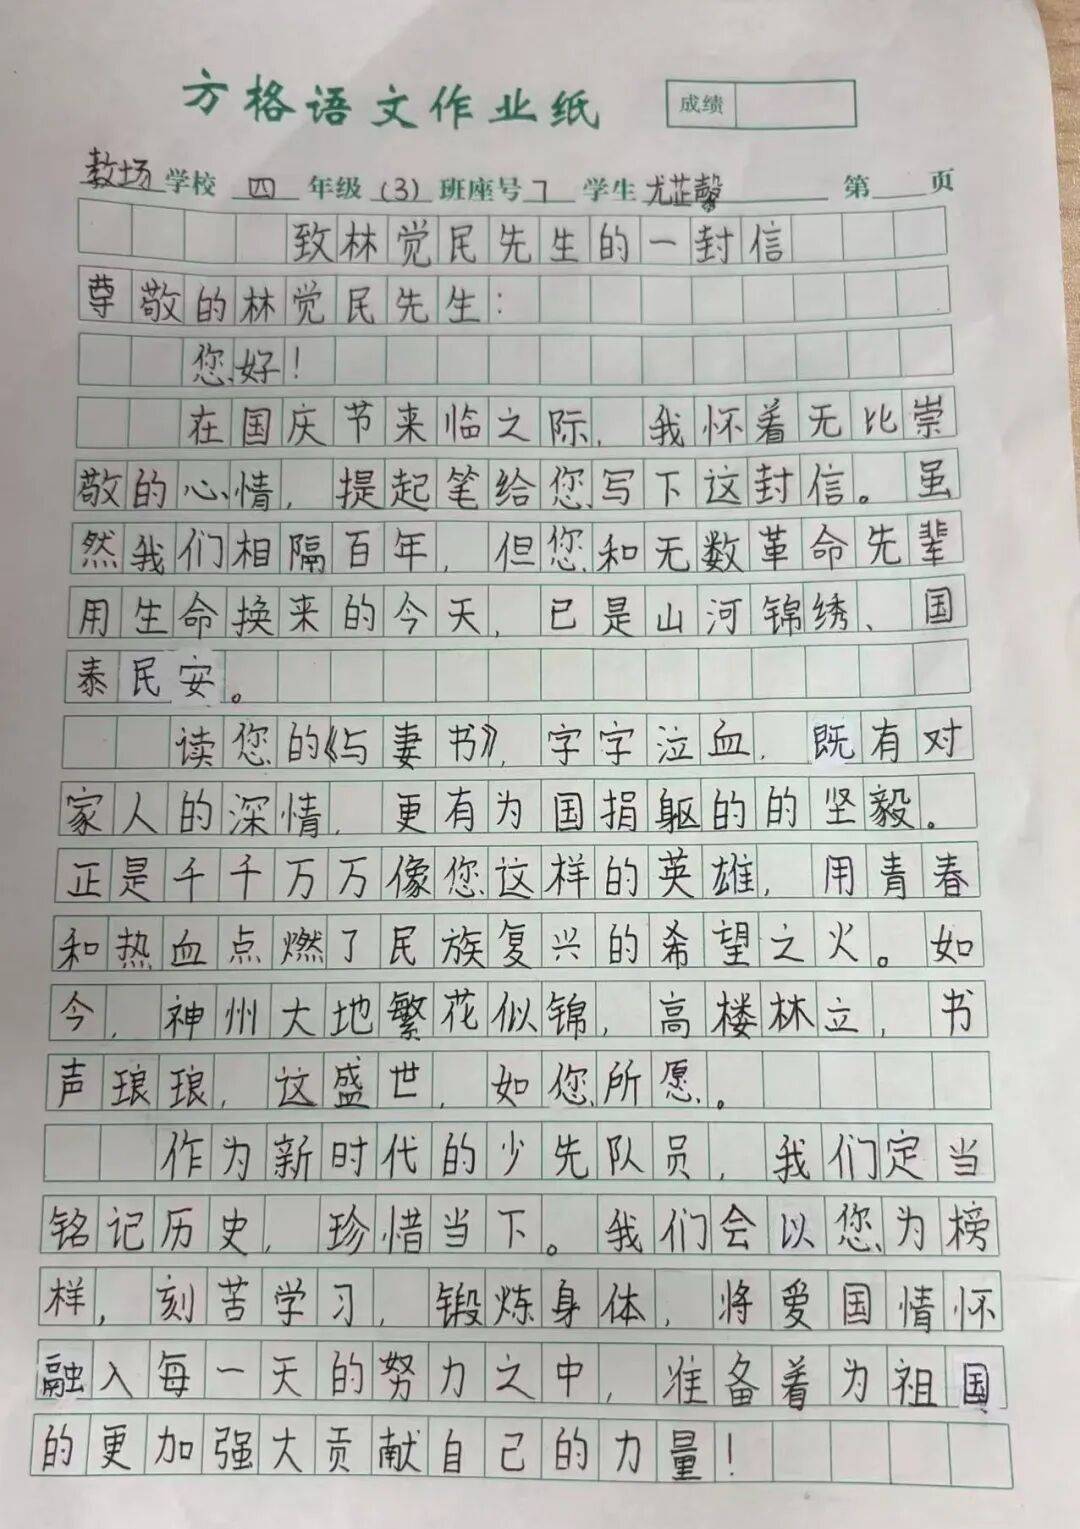 方格语文作业纸 成绩
教场学校 四 年级 (3) 班座号 7 学生 尤芷馨 第 页
致林觉民先生的一封信
尊敬的林觉民先生：
您好！
在国庆节来临之际，我怀着无比崇
敬的心情，提起笔给您写下这封信。虽
然我们相隔百年，但您和无数革命先辈
用生命换来的今天，已是山河锦绣、国
泰民安。
读您的《与妻书》，字字泣血，既有对
家人的深情，更有为国捐躯的的坚毅。
正是千千万万像您这样的英雄，用青春
和热血点燃了民族复兴的希望之火。如
今，神州大地繁花似锦，高楼林立，书
声琅琅，这盛世，如您所愿。
作为新时代的少先队员，我们定当
铭记历史，珍惜当下。我们会以您为榜
样，刻苦学习，锻炼身体，将爱国情怀
融入每一天的努力之中，准备着为祖国
的更加强大贡献自己的力量！